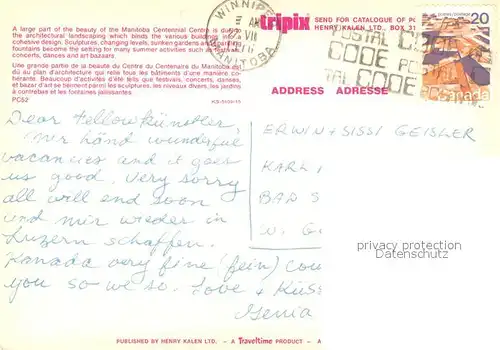 A large part of the beauty of the Manitoba Centennial Centre is due to
the architectural landscaping which binds the various buildings into a
cohesive design. Sculptures, changing levels, sunken gardens and
fountains become the setting for many summer activities such as
concerts, dances and art bazaars.
Une grande partie de la beauté du Centre du Centenaire du Manitoba est
dû au plan d'architecture qui relie tous les bâtiments d'une manière co-
hérente. Beaucoup d'activités d'été tels que festivals, concerts, danses,
et bazar d'art se tiennent parmi les sculptures, les niveaux divers, les jardins
à contrebas et les fontaines jaillissantes.
PC52
WINNIPEG
MANITOBA
tripix
SEND FOR CATALOGUE OF
HENRY KALEN LTD., BOX
POSTAL CODE
20
Canada
ADDRESS ADRESSE
Dear Fellowkünstler,
Wir händ wunderful
vacancies and it goes
us good. Very sorry
all will end soon
und mir wieder in
Luzern schaffen.
Kanada very fine (fein)
you so we so. Love + Küss
Genia
ERWIN + SISSI GEISLER
KARL
BAD S
W. G
privacy protection
PUBLISHED BY HENRY KALEN LTD. – A Traveltime PRODUCT – A